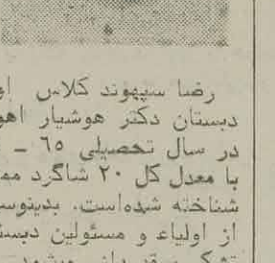 رضا سپهوند کلاس
دبستان دکتر هوشیار
در سال تحصیلی ٦٥ ـ
با معدل کل ٢٠ شاگرد
شناخته شده‌است. بدینوسیله
از اولیاء و مسئولین